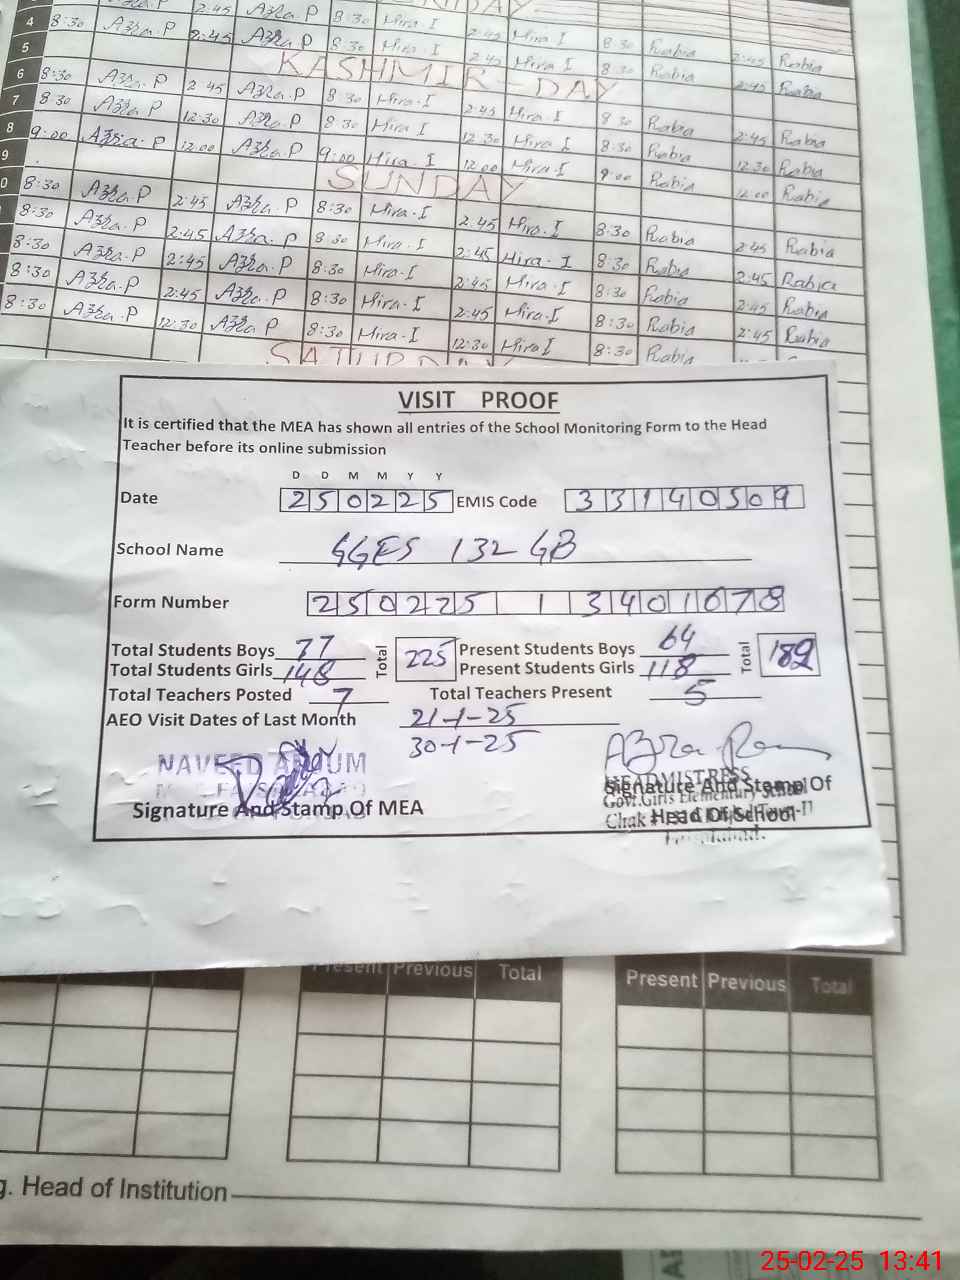 4 8:30 Azra.P 2:45 Azra.P 8:30 Hira-I 2:45 Hira I 8:30 Rabia 2:45 Rabia
5 KASHMIR-DAY
6 8:30 Azra.P 2:45 Azra.P 8:30 Hira-I 2:45 Hira-I 8:30 Rabia 2:45 Rabia
7 8:30 Azra.P 12:30 Azra.P 8:30 Hira I 12:30 Hira-I 8:30 Rabia 12:30 Rabia
8 9:00 Azra-P 12:00 Azra.P 9:00 Hira-I 12:00 Hira-I 9:00 Rabia 12:00 Rabia
9 SUNDAY
0 8:30 Azra.P 2:45 Azra.P 8:30 Hira-I 2:45 Hira-I 8:30 Rabia 2:45 Rabia
8:30 Azra.P 2:45 Azra.P 8:30 Hira-I 2:45 Hira-I 8:30 Rabia 2:45 Rabia
8:30 Azra.P 2:45 Azra.P 8:30 Hira-I 2:45 Hira-I 8:30 Rabia 2:45 Rabia
8:30 Azra.P 2:45 Azra.P 8:30 Hira-I 2:45 Hira-I 8:30 Rabia 2:45 Rabia
8:30 Azra.P 12:30 Azra P 8:30 Hira-I 12:30 Hira I 8:30 Rabia
VISIT PROOF
It is certified that the MEA has shown all entries of the School Monitoring Form to the Head
Teacher before its online submission
D D M M Y Y
Date 250225 EMIS Code 33140509
School Name GGES 132 GB
Form Number 250225 1 3401678
Total Students Boys 77 Total 225 Present Students Boys 64 Total 182
Total Students Girls 148 Present Students Girls 118
Total Teachers Posted 7 Total Teachers Present 5
AEO Visit Dates of Last Month 21-1-25
30-1-25
NAVEED ANJUM
Signature And Stamp Of MEA
HEADMISTRESS
Signature And Stamp Of
Govt.Girls Elementary School
Head Of School
Chak
Present Previous Total Present Previous Total
g. Head of Institution
25-02-25 13:41